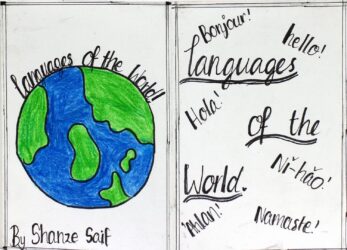 Languages of the World!
By Shanze Saif
Bonjour!
hello!
Languages
Hola!
of the
Ni-hăo!
World.
'Ahlan!
Namaste!